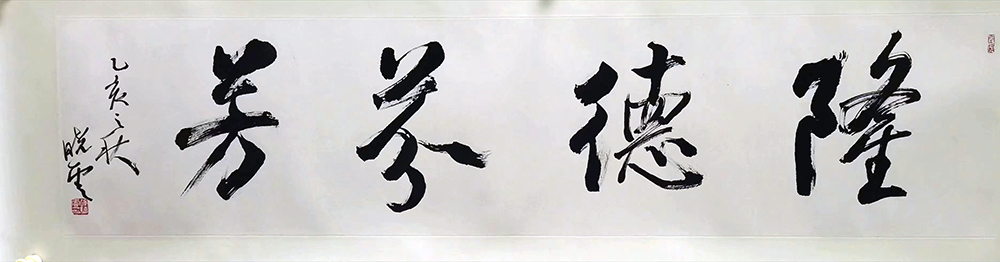 隆德芬芳
乙亥之秋
晓云